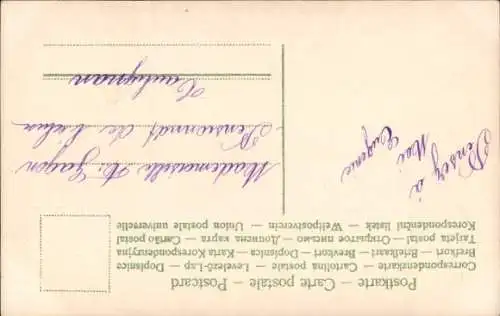 Postkarte — Carte postale — Postcard
Correspondenzkarte — Cartolina postale — Levelező-Lap — Dopisnice
Brefkort — Briefkaart — Brevkort — Dopisnica — Karta Korespondencyjna
Tarjeta postal — Открытое письмо — Дописна карта — Cartão postal
Korespondenční listek — Weltpostverein — Union postale universelle
Mademoiselle H. Gagon
Pensionnat de
Pensez à
Moi
Eugenie